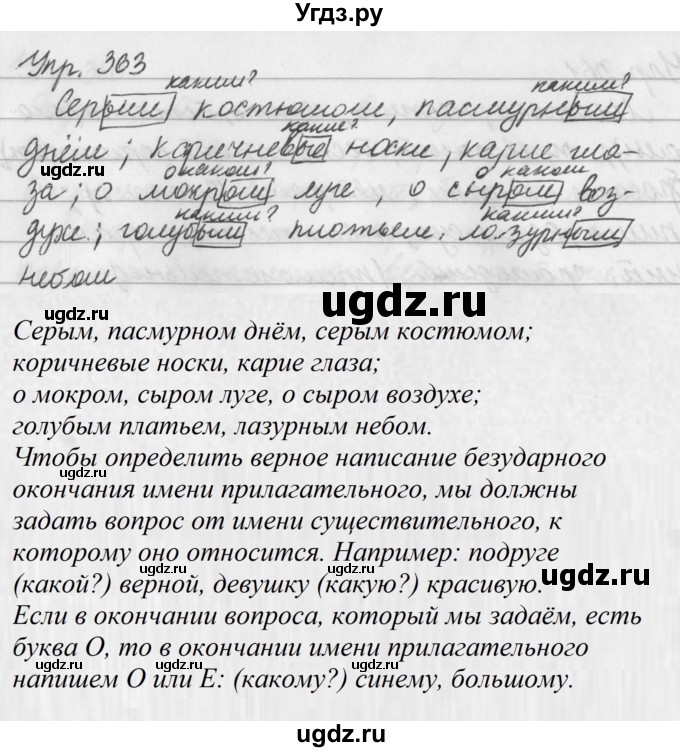 Угдз.ру
Упр. 363
каким? каким?
Серым костюмом, пасмурным
какие?
днём; коричневые носки, карие гла-
о каком? о каком
за; о мокром луге, о сыром воз-
каким? каким?
духе; голубым платьем, лазурным
небом
ugdz.ru
ugdz.ru
Серым, пасмурном днём, серым костюмом;
коричневые носки, карие глаза;
о мокром, сыром луге, о сыром воздухе;
голубым платьем, лазурным небом.
Чтобы определить верное написание безударного
ugdz.ru
окончания имени прилагательного, мы должны
задать вопрос от имени существительного, к
которому оно относится. Например: подруге
ugdz.ru ugdz.ru ugdz.ru
(какой?) верной, девушку (какую?) красивую.
Если в окончании вопроса, который мы задаём, есть
буква О, то в окончании имени прилагательного
ugdz.ru ugdz.ru
напишем О или Е: (какому?) синему, большому.
ugdz.ru ugdz.ru
ugdz.ru